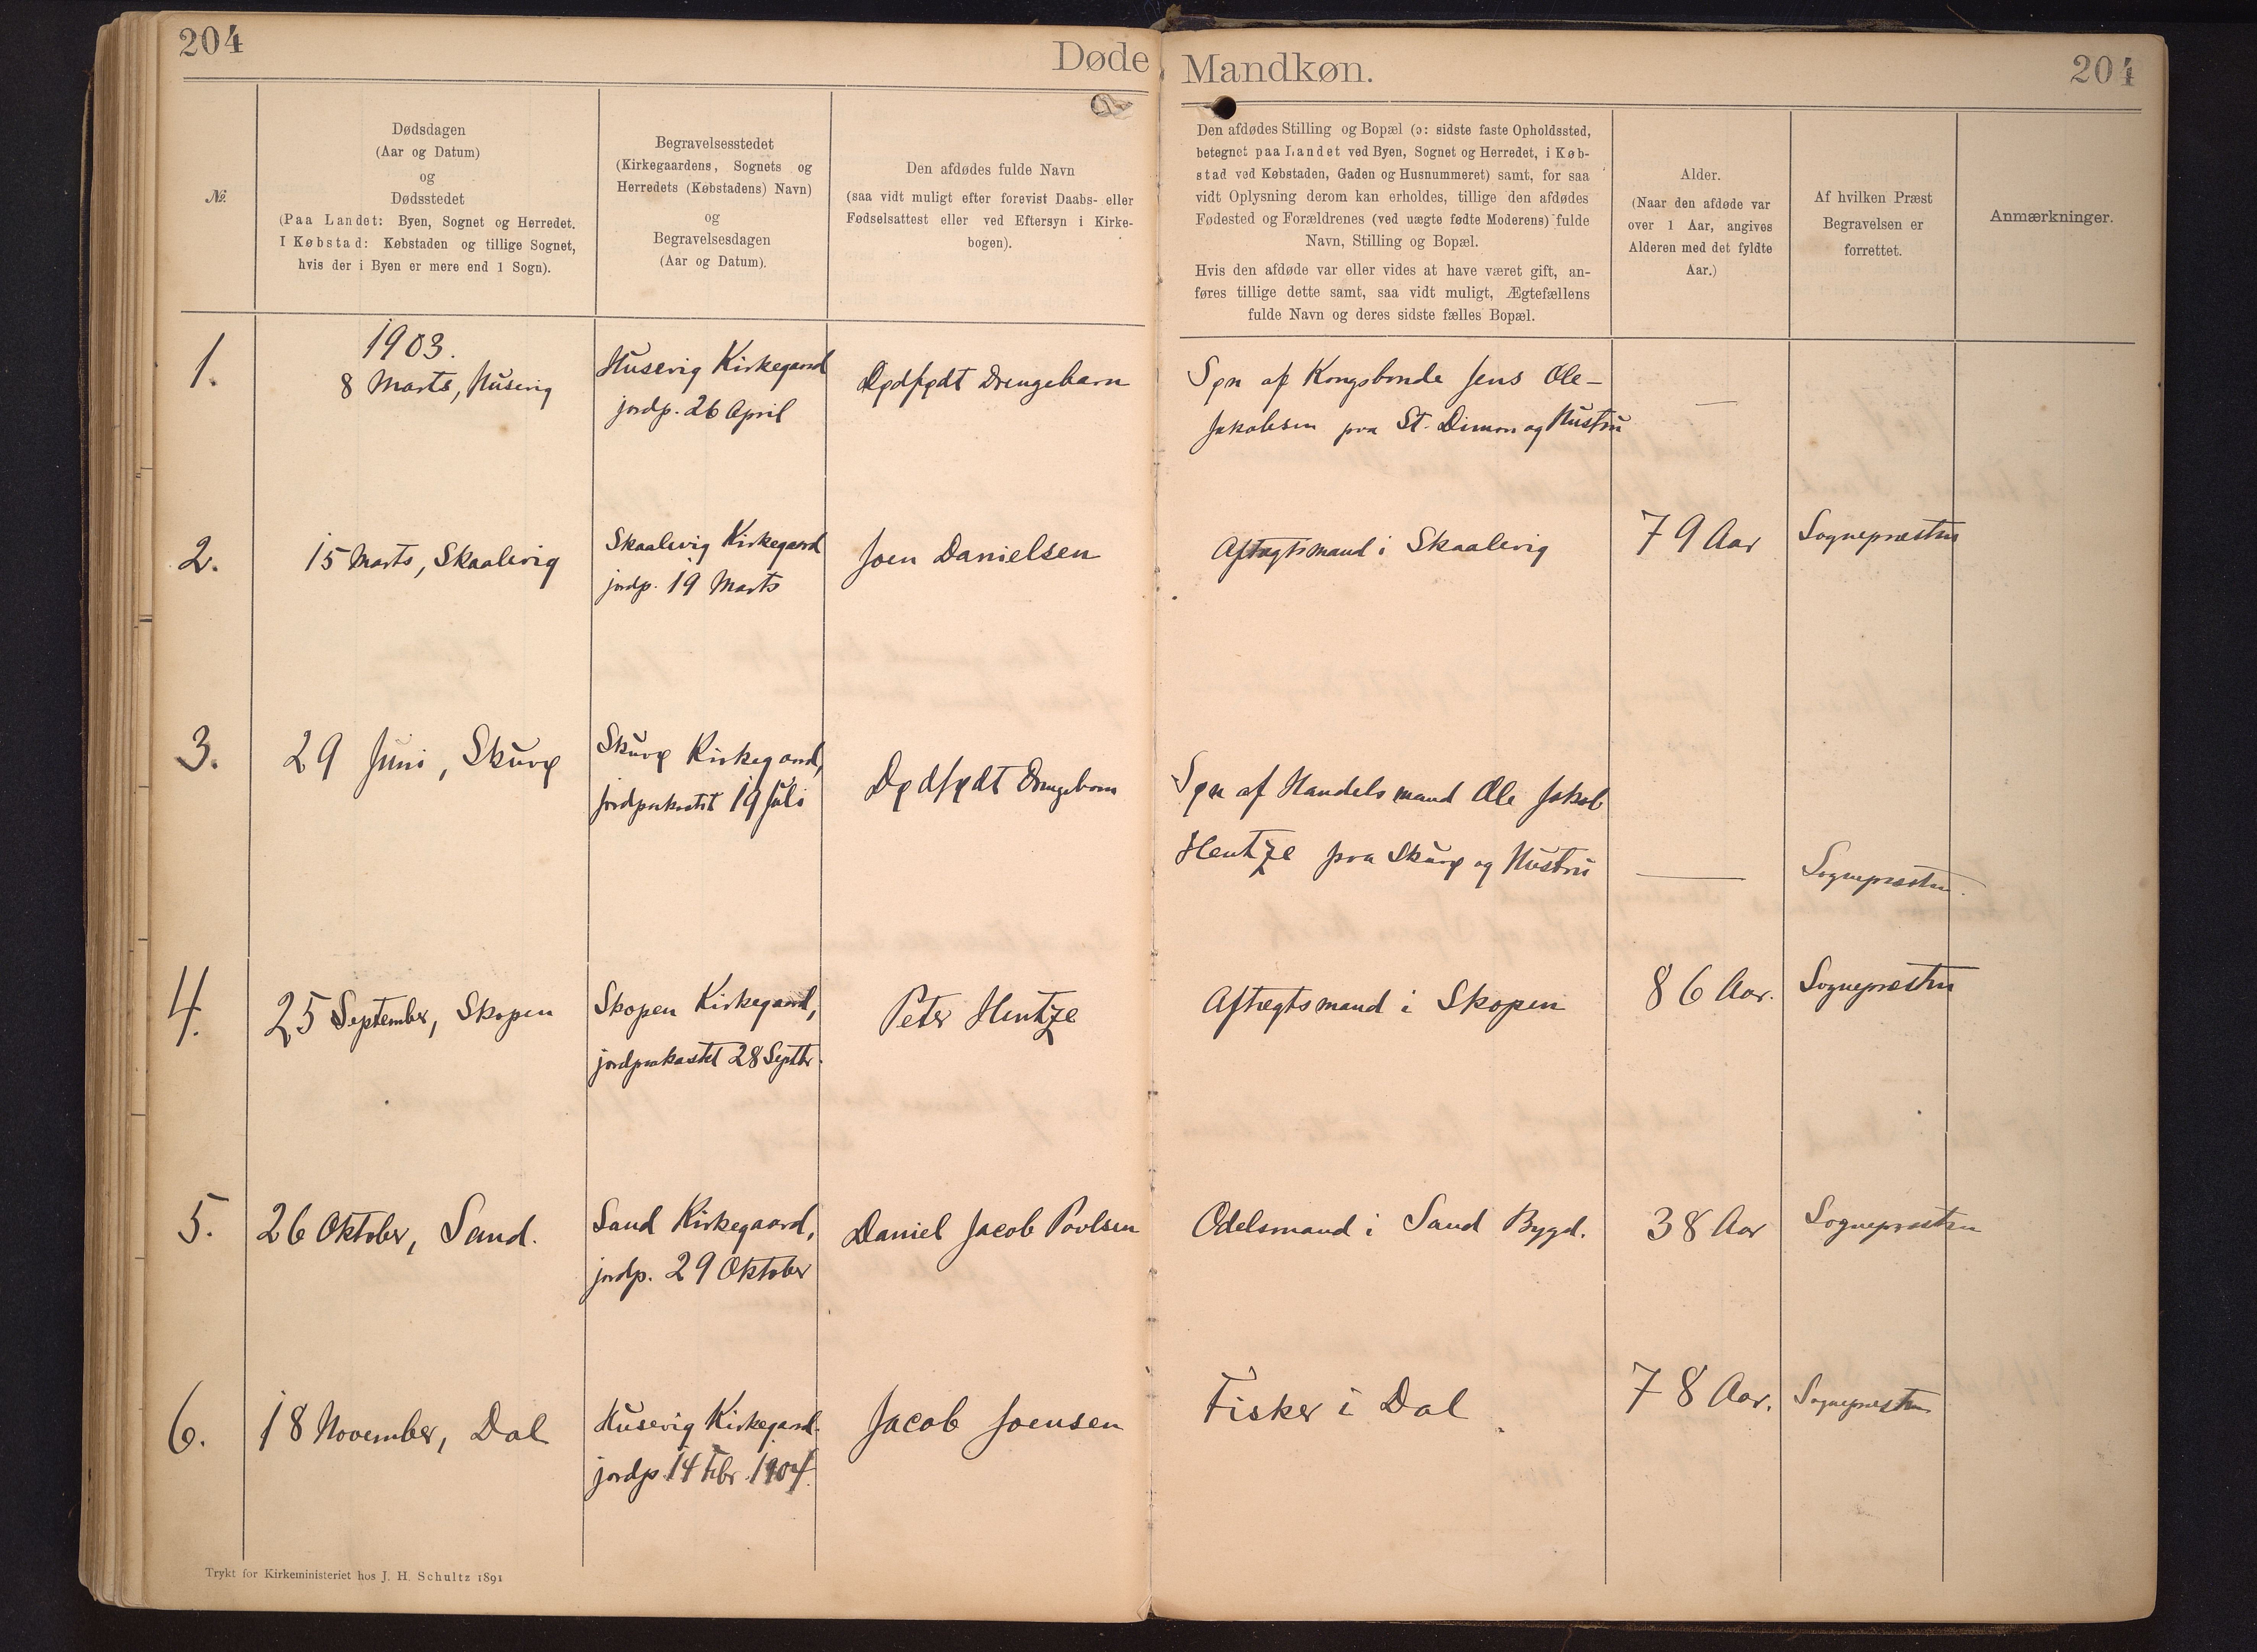 204
Døde Mandkøn.
204
№.
Dødsdagen
(Aar og Datum)
og
Dødsstedet
(Paa Landet: Byen, Sognet og Herredet.
I Købstad: Købstaden og tillige Sognet,
hvis der i Byen er mere end 1 Sogn).
Begravelsesstedet
(Kirkegaardens, Sognets og
Herredets (Købstadens) Navn)
og
Begravelsesdagen
(Aar og Datum).
Den afdødes fulde Navn
(saa vidt muligt efter forevist Daabs- eller
Fødselsattest eller ved Eftersyn i Kirke-
bogen).
Den afdødes Stilling og Bopæl (ɔ: sidste faste Opholdssted,
betegnet paa Landet ved Byen, Sognet og Herredet, i Køb-
stad ved Købstaden, Gaden og Husnummeret) samt, for saa
vidt Oplysning derom kan erholdes, tillige den afdødes
Fødested og Forældrenes (ved uægte fødte Moderens) fulde
Navn, Stilling og Bopæl.
Hvis den afdøde var eller vides at have været gift, an-
føres tillige dette samt, saa vidt muligt, Ægtefællens
fulde Navn og deres sidste fælles Bopæl.
Alder.
(Naar den afdøde var
over 1 Aar, angives
Alderen med det fyldte
Aar.)
Af hvilken Præst
Begravelsen er
forrettet.
Anmærkninger.
1.
1903.
8 Marts, Husevig
Husevig Kirkegaard
jordp. 26 April
Dødfødt Drengebarn
Søn af Kongsbonde Jens Ole-
Jakobsen fra St. Dimon og Hustru
—
2.
15 Marts, Skaalevig
Skaalevig Kirkegaard
jordp. 19 Marts
Joen Danielsen
Aftægtsmand i Skaalevig
79 Aar
Sognepræsten
3.
29 Juni, Skuvø
Skuvø Kirkegaard,
jordpaakastet 19 Juli
Dødfødt Drengebarn
Søn af Handelsmand Ole Jakob
Hentze fra Skuvø og Hustru
—
Sognepræsten.
4.
25 September, Skopen
Skopen Kirkegaard,
jordpaakastet 28 Septbr.
Peter Hentze
Aftægtsmand i Skopen
86 Aar.
Sognepræsten
5.
26 Oktober, Sand.
Sand Kirkegaard,
jordp. 29 Oktober
Daniel Jacob Poulsen
Odelsmand i Sand Bygd.
38 Aar
Sognepræsten
6.
18 November, Dal
Husevig Kirkegaard.
jordp. 14 Febr. 1904.
Jacob Joensen
Fisker i Dal
78 Aar.
Sognepræsten
Trykt for Kirkeministeriet hos J. H. Schultz 1891